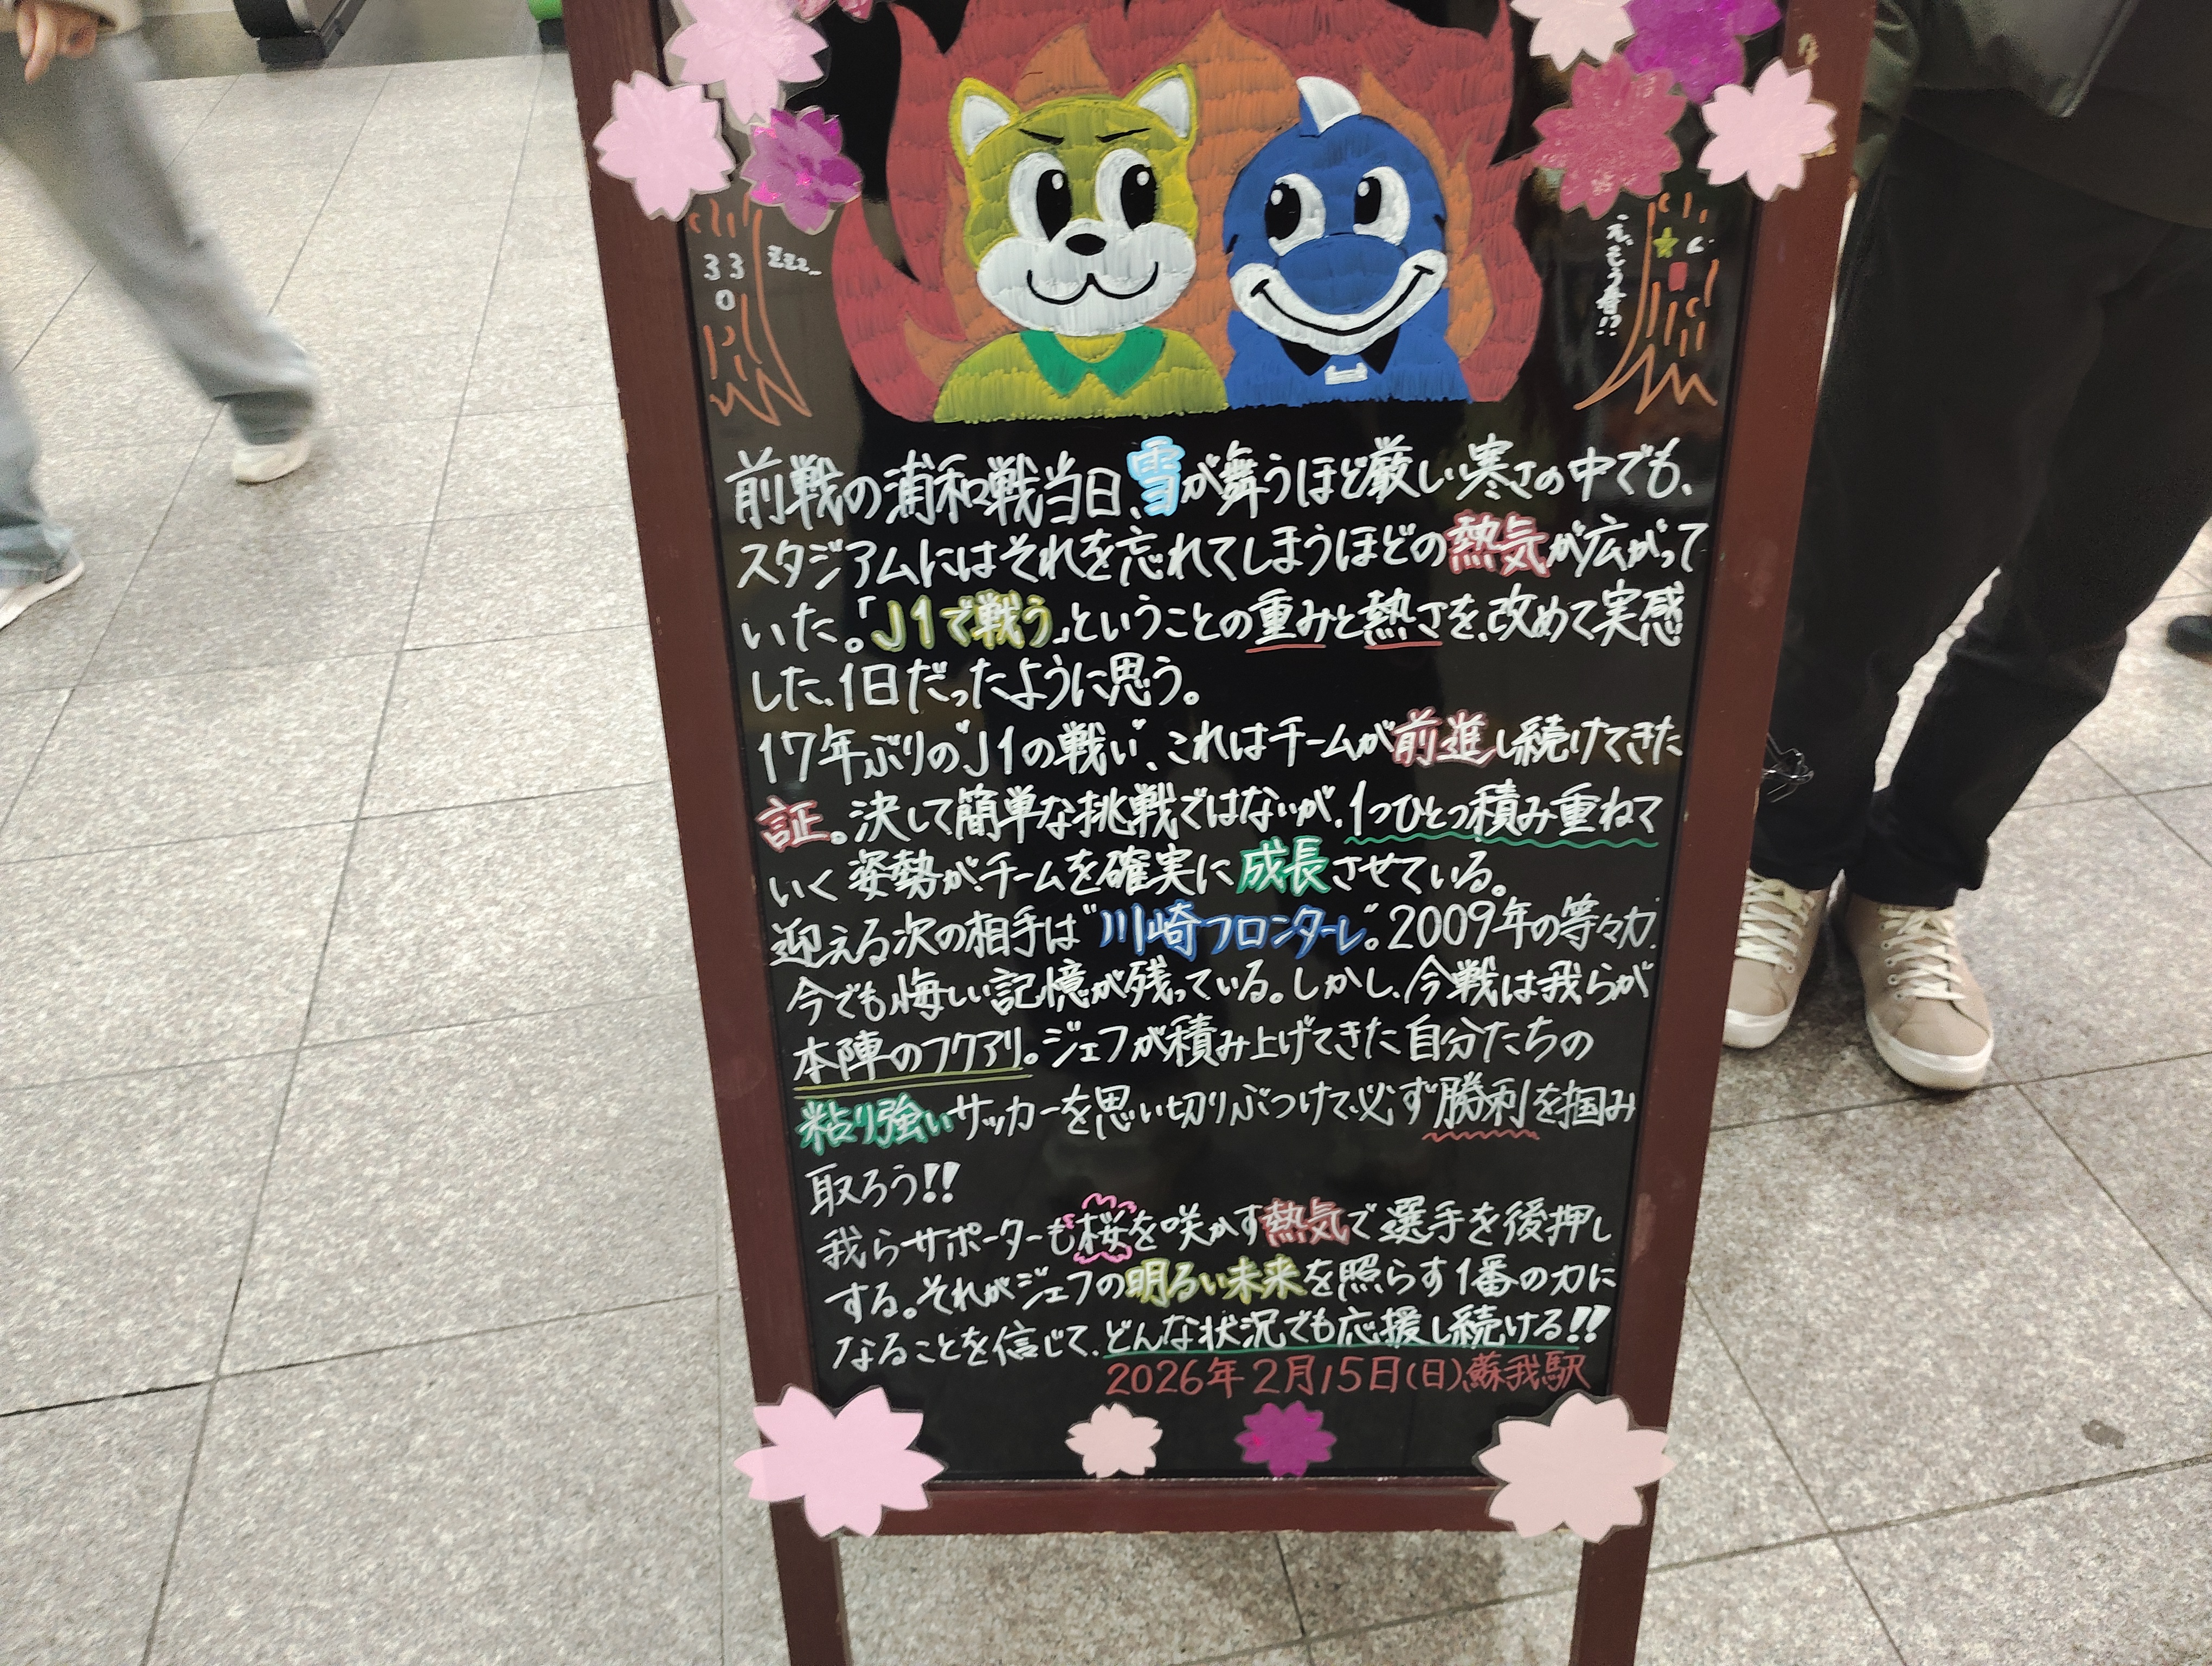 33
0
zzz...
え、もう春!?
前戦の浦和戦当日、雪が舞うほど厳しい寒さの中でも、
スタジアムにはそれを忘れてしまうほどの熱気が広がって
いた。「J1で戦う」ということの重みと熱さを、改めて実感
した、1日だったように思う。
17年ぶりの"J1の戦い"、これはチームが前進し続けてきた
証。決して簡単な挑戦ではないが、1つひとつ積み重ねて
いく姿勢が、チームを確実に成長させている。
迎える次の相手は"川崎フロンターレ"。2009年の等々力、
今でも悔しい記憶が残っている。しかし、今戦は我らが
本陣のフクアリ。ジェフが積み上げてきた自分たちの
粘り強いサッカーを思い切りぶつけて、必ず勝利を掴み
取ろう!!
我らサポーターも桜を咲かす熱気で選手を後押し
する。それがジェフの明るい未来を照らす1番の力に
なることを信じて、どんな状況でも応援し続ける!!
2026年2月15日(日)蘇我駅